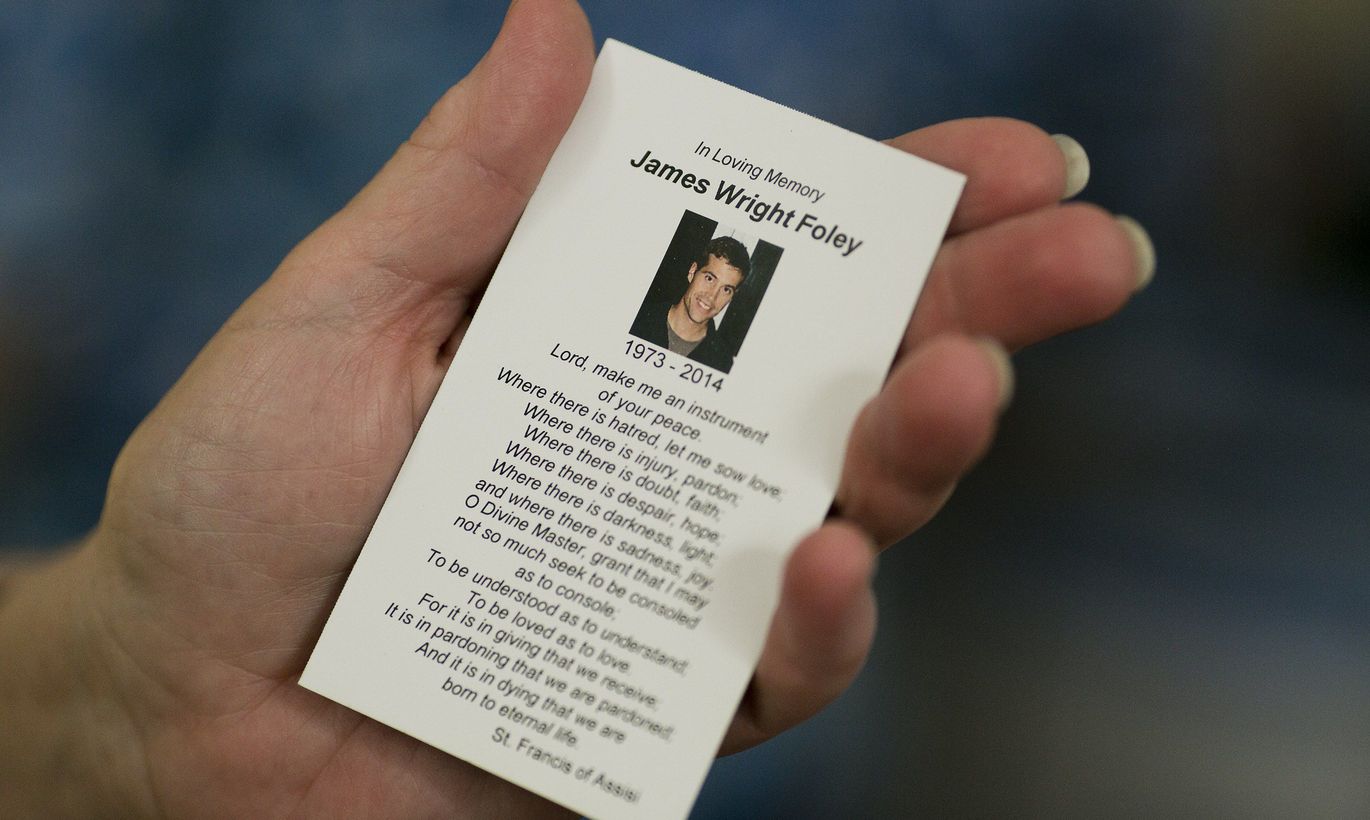 In Loving Memory
James Wright Foley
1973 - 2014
Lord, make me an instrument
of your peace.
Where there is hatred, let me sow love;
Where there is injury, pardon;
Where there is doubt, faith;
Where there is despair, hope;
Where there is darkness, light;
and where there is sadness, joy.
O Divine Master, grant that I may
not so much seek to be consoled
as to console;
To be understood as to understand;
To be loved as to love.
For it is in giving that we receive;
It is in pardoning that we are pardoned;
And it is in dying that we are
born to eternal life.
St. Francis of Assisi